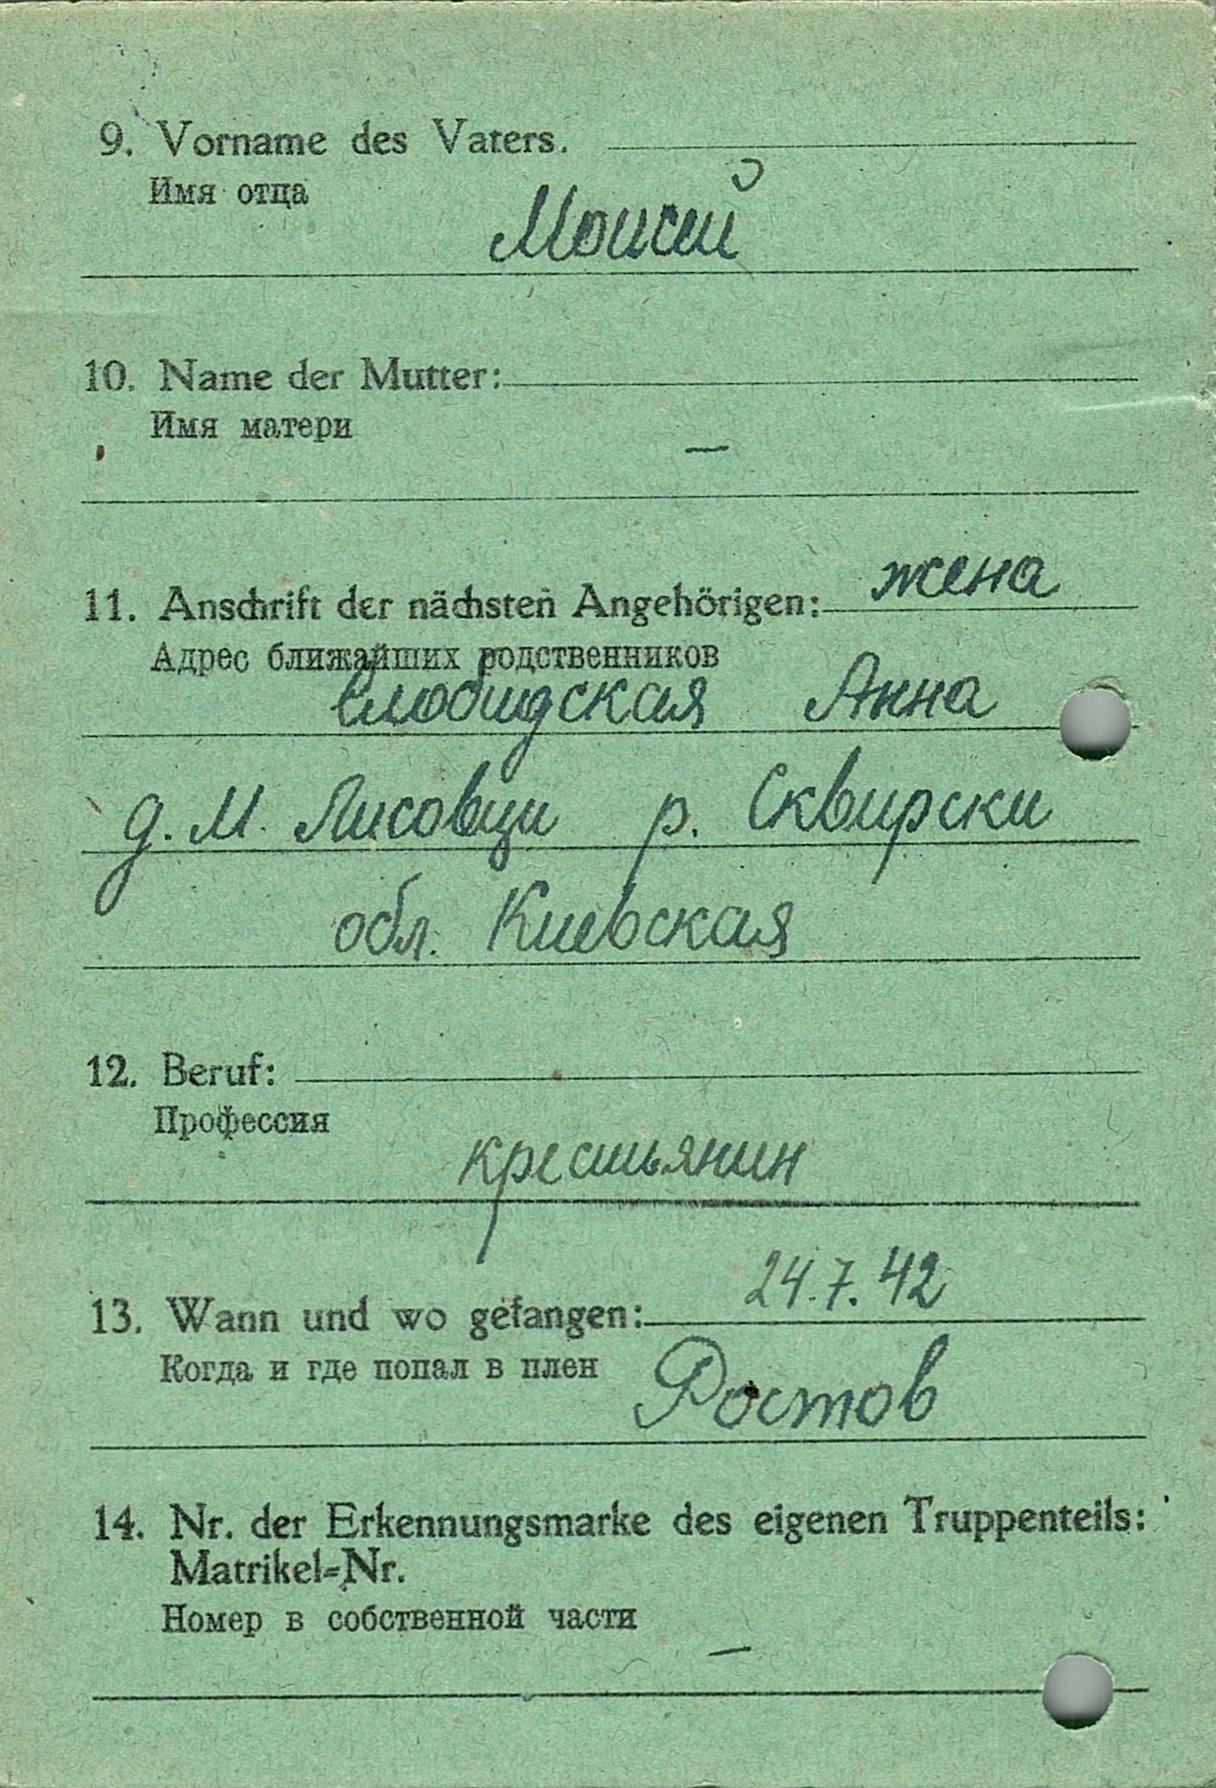 9. Vorname des Vaters.
Имя отца
Моисей
10. Name der Mutter:
Имя матери
—
11. Anschrift der nächsten Angehörigen: жена
Адрес ближайших родственников
Слобидская Анна
д. М. Лисовци р. Сквирски
обл. Киевская
12. Beruf:
Профессия
крестьянин
13. Wann und wo gefangen: 24.7.42
Когда и где попал в плен
Ростов
14. Nr. der Erkennungsmarke des eigenen Truppenteils:
Matrikel-Nr.
Номер в собственной части
—